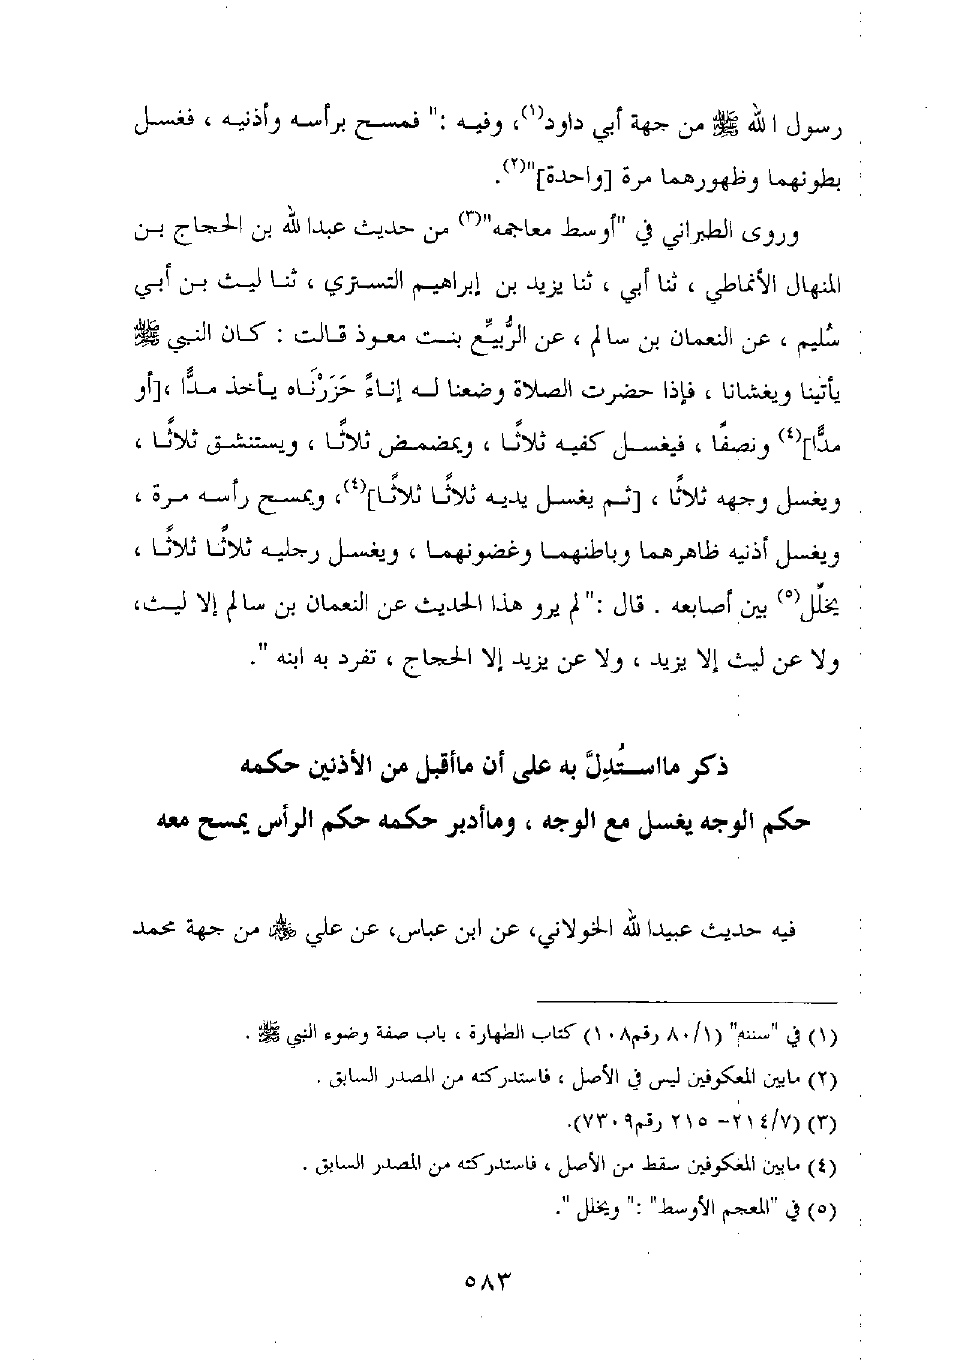 رسول الله ﷺ من جهة أبي داود(١)، وفيه :" فمسح برأسه وأذنيه ، فغسل
بطونهما وظهورهما مرة [واحدة]"(٢).
وروى الطبراني في "أوسط معاجمه"(٣) من حديث عبدالله بن الحجاج بن
المنهال الأنماطي ، ثنا أبي ، ثنا يزيد بن إبراهيم التستري ، ثنا ليث بن أبي
سُليم ، عن النعمان بن سالم ، عن الرُّبيِّع بنت معوذ قالت : كان النبي ﷺ
يأتينا ويغشانا ، فإذا حضرت الصلاة وضعنا له إناءً حَزَرْنَاه يأخذ مدًّا ،[أو
مدًّا](٤) ونصفًا ، فيغسل كفيه ثلاثًا ، ويمضمض ثلاثًا ، ويستنشق ثلاثًا ،
ويغسل وجهه ثلاثًا ، [ثم يغسل يديه ثلاثًا ثلاثًا](٤)، ويمسح رأسه مرة ،
ويغسل أذنيه ظاهرهما وباطنهما وغضونهما ، ويغسل رجليه ثلاثًا ثلاثًا ،
يخلّل(٥) بين أصابعه . قال :" لم يرو هذا الحديث عن النعمان بن سالم إلا ليث،
ولا عن ليث إلا يزيد ، ولا عن يزيد إلا الحجاج ، تفرد به ابنه ".
ذكر مااستُدِلَّ به على أن ماأقبل من الأذنين حكمه
حكم الوجه يغسل مع الوجه ، وماأدبر حكمه حكم الرأس يمسح معه
فيه حديث عبيدالله الخولاني، عن ابن عباس، عن علي ﷺ من جهة محمد
(١) في "سننه" (٨٠/١ رقم١٠٨) كتاب الطهارة ، باب صفة وضوء النبي ﷺ .
(٢) مابين المعكوفين ليس في الأصل ، فاستدركته من المصدر السابق .
(٣) (٢١٤/٧- ٢١٥ رقم٧٣٠٩).
(٤) مابين المعكوفين سقط من الأصل ، فاستدركته من المصدر السابق .
(٥) في "المعجم الأوسط" :" ويخلل ".
٥٨٣